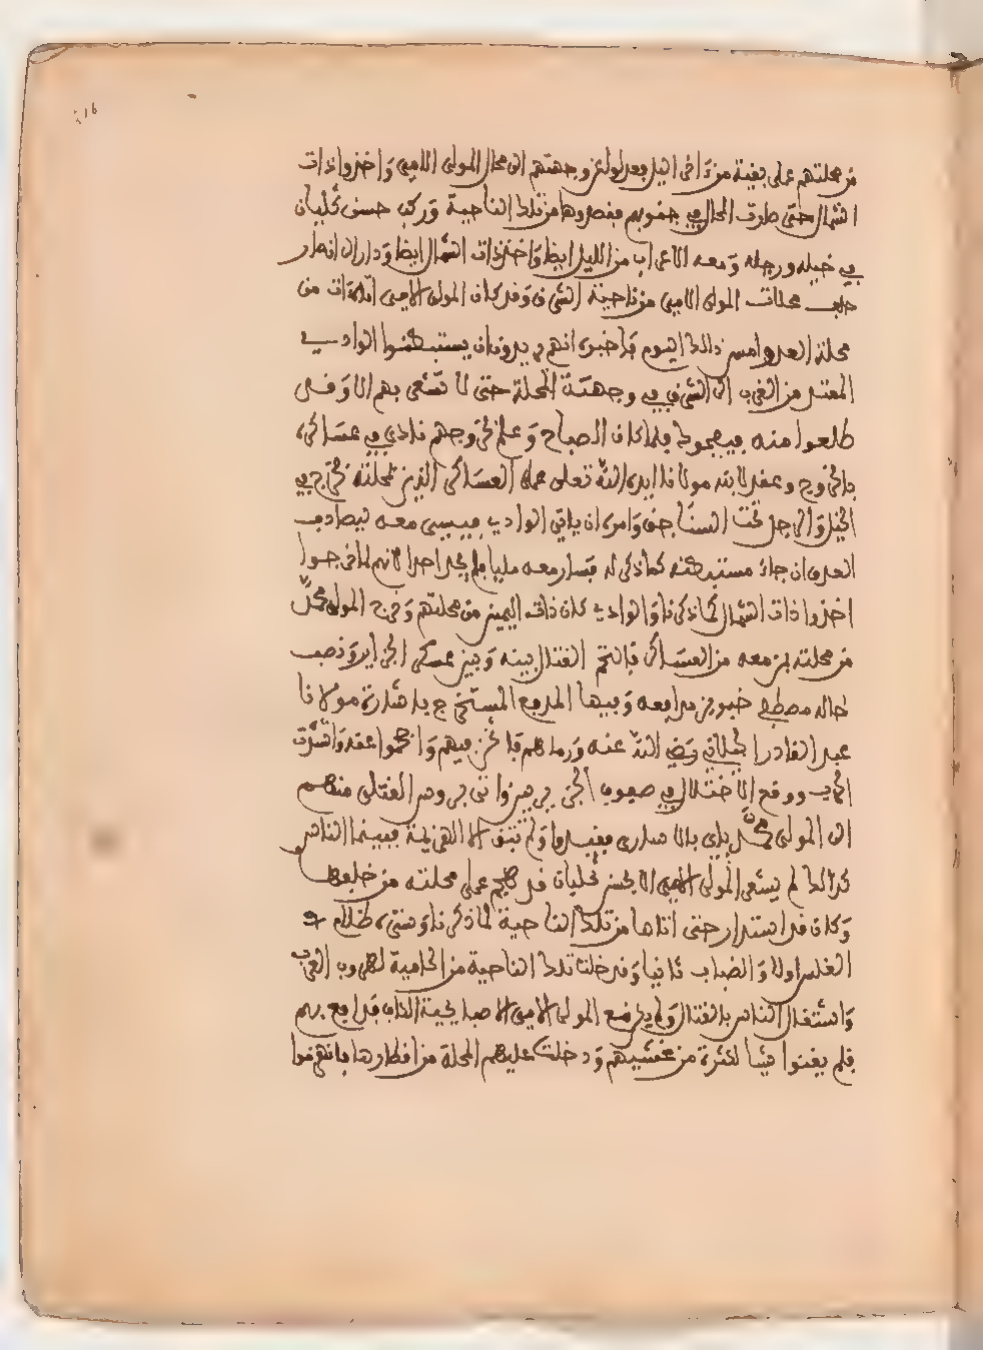 من محلتهم على بغتة من اخر اليل بعد لولن وجهتهم الى محال المولى الامير واخذوا ذات
الشمال حتى طرف المحال في جنوبهم فقصدوها من تلك الناحية وركب حسن كليان
في خيله ورجله ومعه الاعراب من الليل ايضا واخذ ذات الشمال ايضا ودار الى ان صار
خلف محلات المولى الامير من ناحية الشرق وقد كان المولى الامير اتاه ات من
محلة العدو امس ذالك اليوم فاخبره انهم يريدون ان يستبطنوا الوادي
الممتد من الغرب الى الشرق في وجهة المحلة حتى لا تشعر بهم الا وقد
طلعوا منه فلما كان الصباح وعلم بخروجهم نادى في عساكره
بالخروج وعقد لابنه مولانا ايده الله تعلى على العساكر الذين بمحلته فخرج في
الخيل والرجل تحت السناجق وامره ان ياتي الوادي فيسير معه ليصادف
العدو ان جاء مستبطنه كما ذكر له فسار معه مليا فلم يجد احدا لانهم لما خرجوا
اخذوا ذات الشمال كما ذكرنا والوادي كان ذات اليمين من محلتهم وخرج المولى محمد
من محلته بمن معه من العساكر فالتحم القتال بينه وبين عسكر الجزاير ونصب
خاله مصطفى خبوجي مدافعه وفيها المدفع المستخرج باشارة مولانا
عبد القادر الجيلاني رضي الله عنه ورماهم فاثخن فيهم واقحموا عنه واشتدت
الحرب ووقع الاختلال في صفوف الجزيريين واتي بروس القتلى منهم
الى المولى محمد باي بالاسارى ولم تبق الا الهزيمة فبينما الناس
كذالك لم يشعر المولى الامير الا بحسن كليان قد هجم على محلته من خلفها
وكان قد استدار حتى اتاها من تلك الناحية كما ذكرنا وستره ظلام
الغلس اولا والضباب ثانيا وقد خلت تلك الناحية من الحامية لهروب العرب
واشتغال الناس بالقتال ولم يبق مع المولى الامير الا صبايحية الكاب فدافع بهم
فلم يغنوا شيا لكثرة من غشيهم ودخلت عليهم المحلة من اقطارها فانهزموا